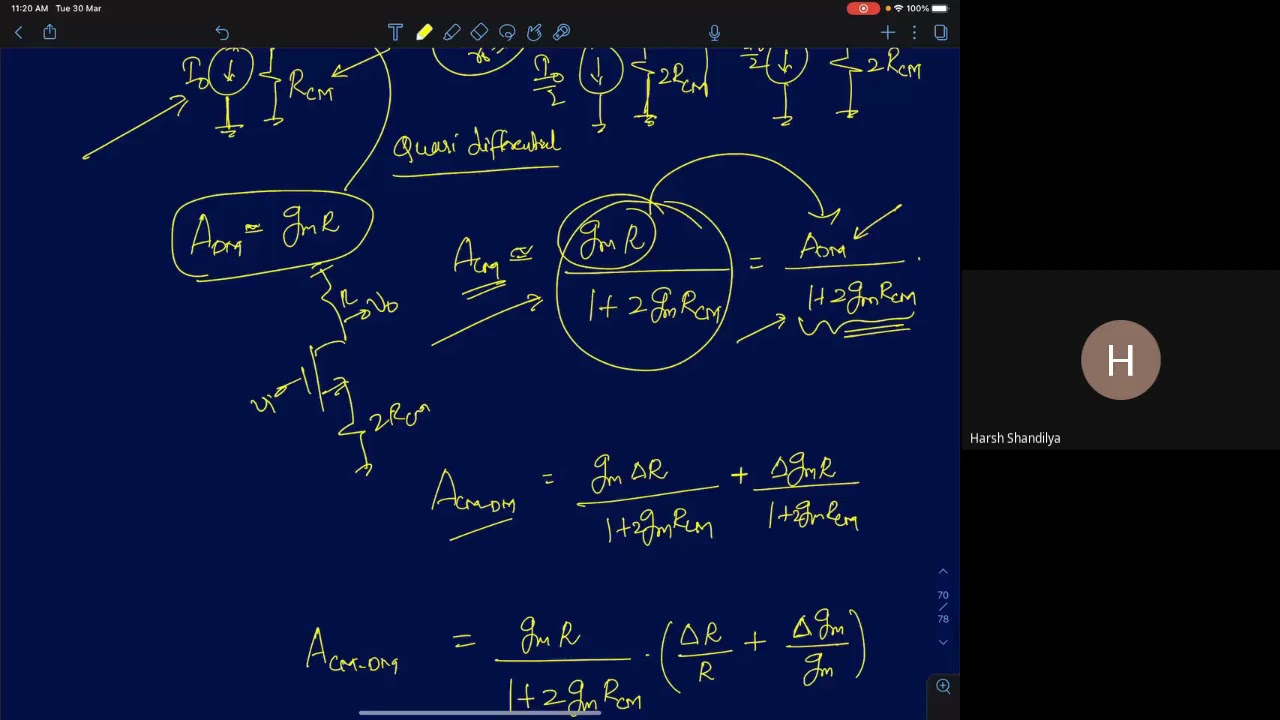 11:20 AM Tue 30 Mar
100%
I₀ R_CM
I₀/2 2R_CM
2R_CM
Quasi differential
A_DM ≈ gₘR
A_CM ≈ gₘR / (1+2gₘR_CM) = A_DM / (1+2gₘR_CM)
R
v₀
vᵢ
2R_CM
A_CM-DM = gₘΔR / (1+2gₘR_CM) + ΔgₘR / (1+2gₘR_CM)
70
/
78
A_CM-DM = gₘR / (1+2gₘR_CM) · (ΔR/R + Δgₘ/gₘ)
H
Harsh Shandilya